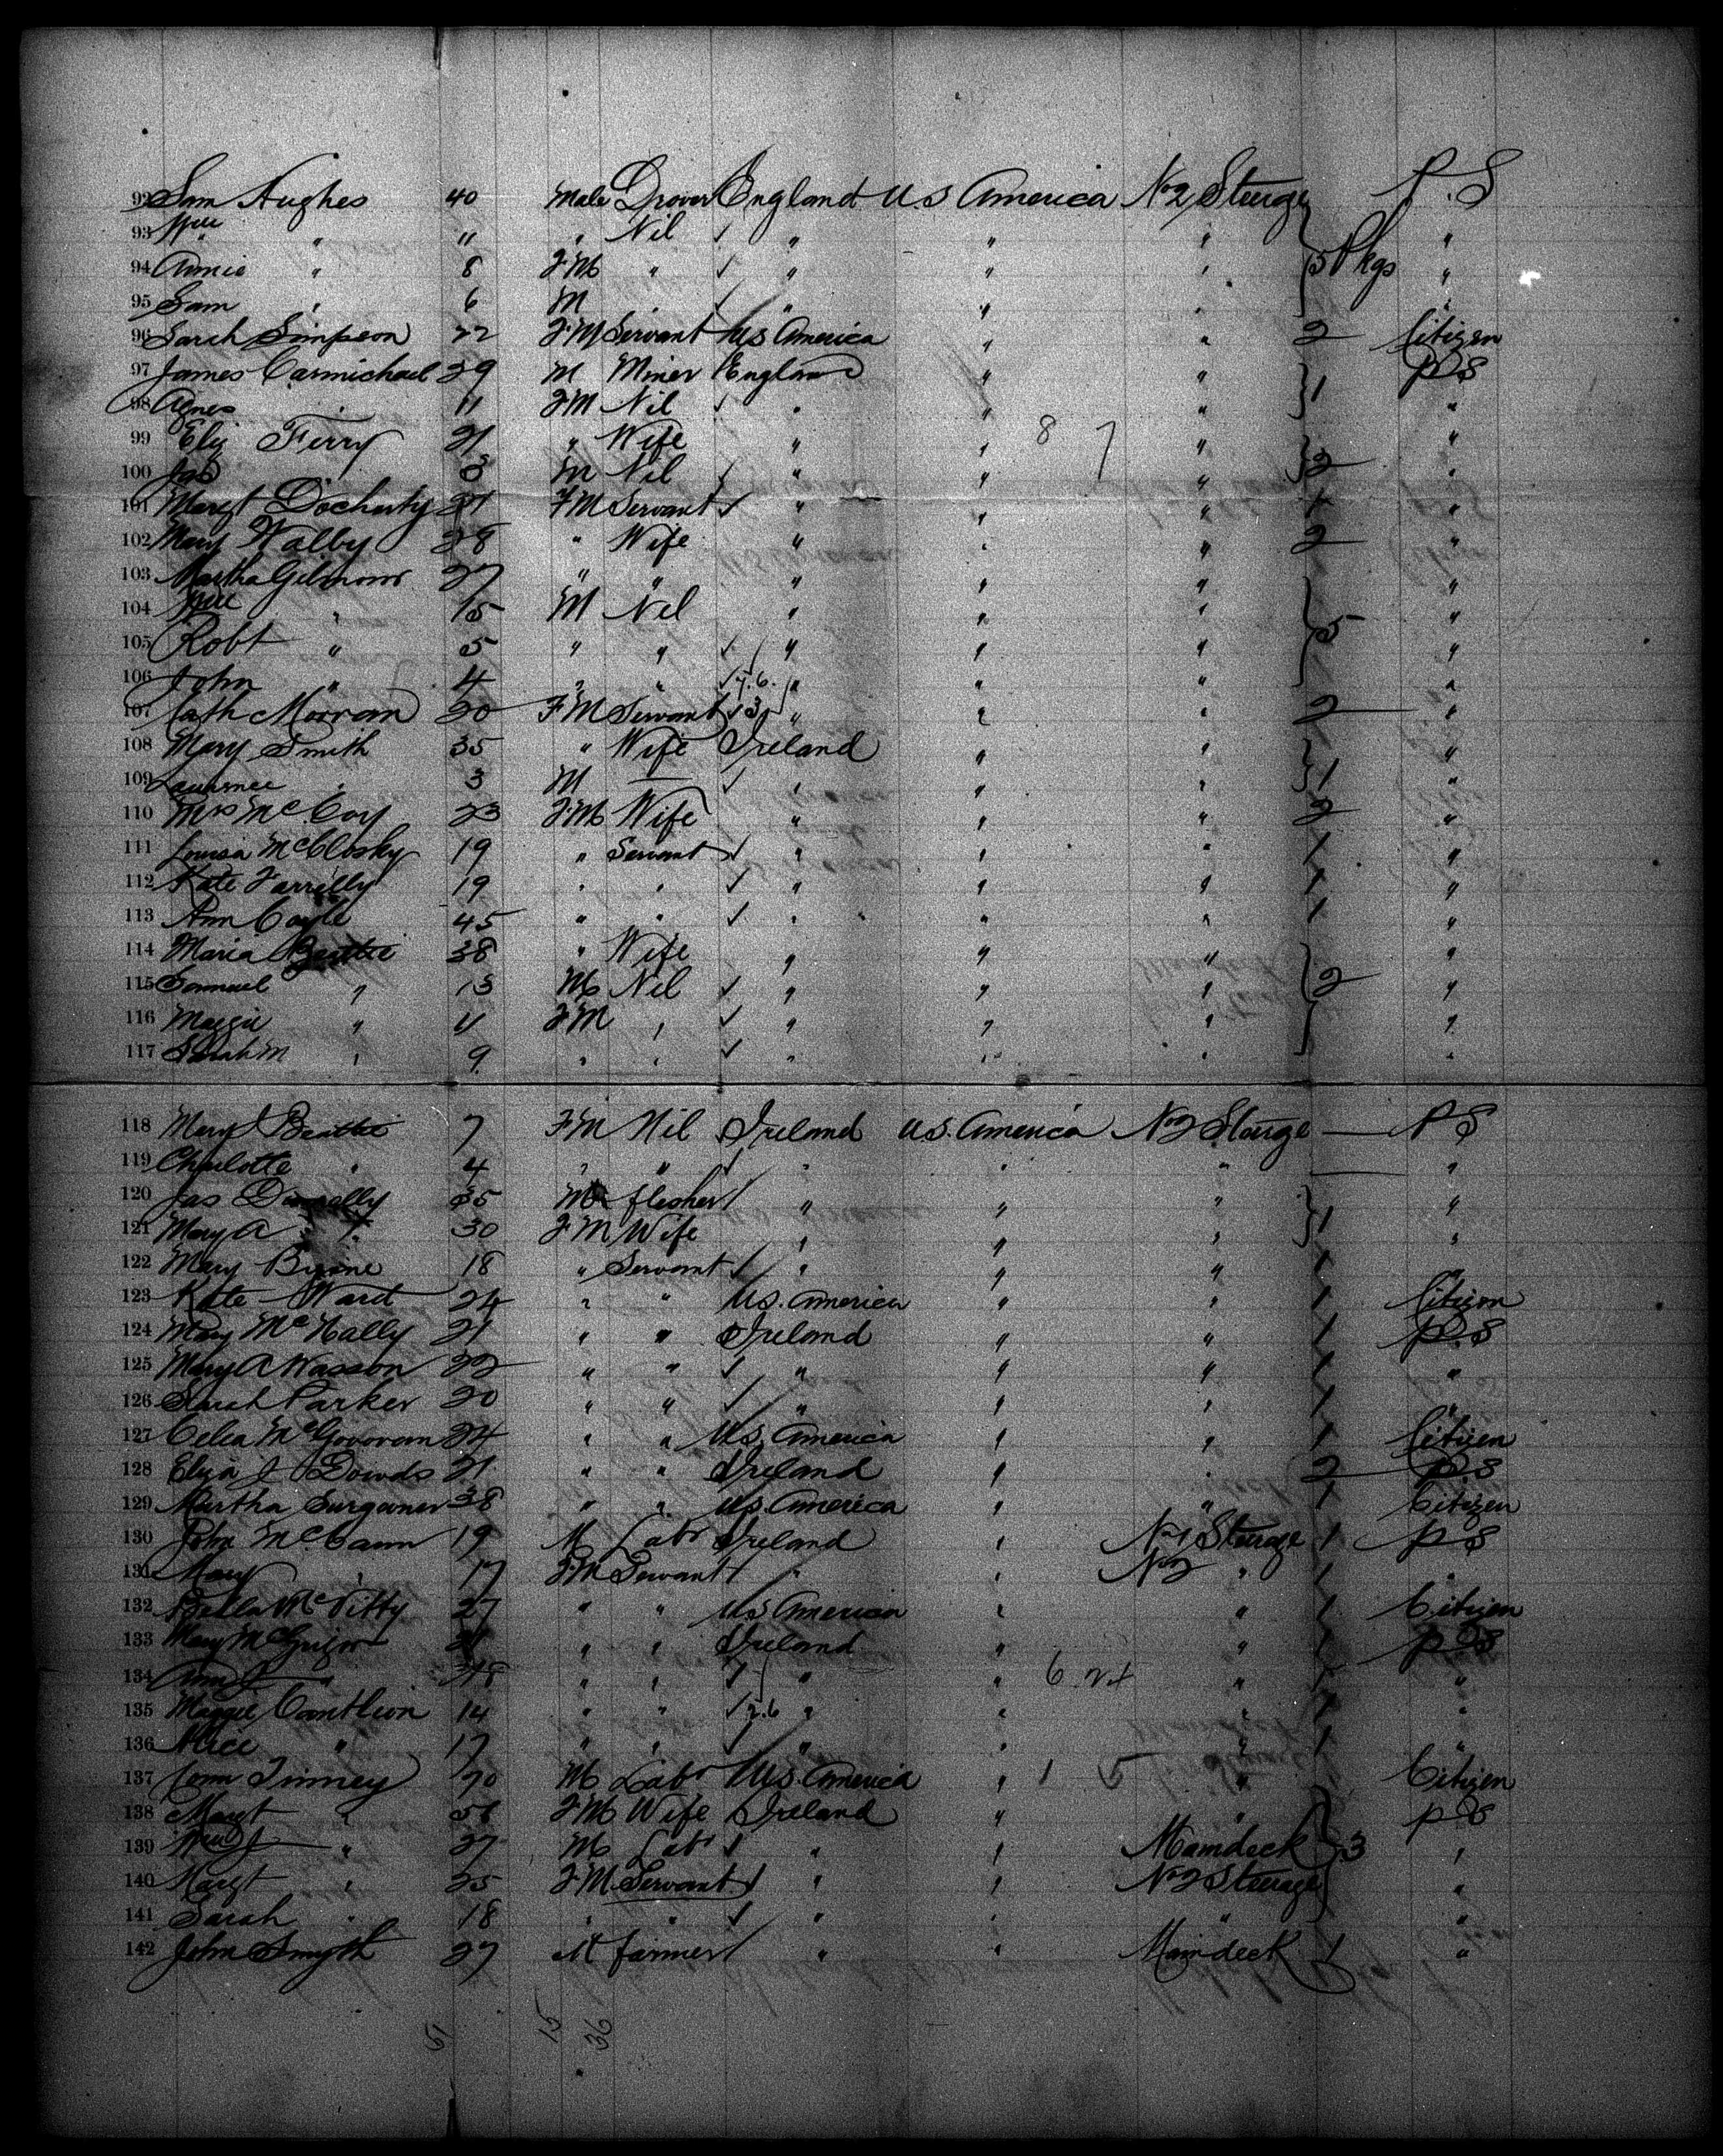 92 Sam Hughes 40 Male Drover England US America No 2 Steerge P.S
93 Will " 11 " Nil ✓ " " " 5 Pkgs "
94 Annie " 8 FM " ✓ " " " "
95 Sam " 6 M " ✓ " " " "
96 Sarah Simpson 22 FM Servant US America " " 2 Citizen
97 James Carmichael 39 M Miner England " " 1 P.S
98 Agnes " 11 FM Nil ✓ " " " "
99 Eliz Ferry 21 " Wife " " 8 7 " 2 "
100 Jas 3 M Nil ✓ " " " "
101 Margt Docharty 21 FM Servant ✓ " " " 1 "
102 Mary Walby 28 " Wife " " " 2 "
103 Martha Gilmour 27 " " " " " "
104 Will " 15 M Nil " " " 5 "
105 Robt " 5 " " ✓ " " " "
106 John " 4 " " ✓ " " " "
107 Cath Morran 20 FM Servant ✓ " " " 2 "
108 Mary Smith 35 " Wife Ireland " " 1 "
109 Laurence " 3 M — ✓ " " " "
110 Mrs McCoy 23 FM Wife " " " 2 "
111 Louisa McClosky 19 " Servant ✓ " " " 1 "
112 Kate Farrelly 19 " " ✓ " " " 1 "
113 Ann Coyle 45 " " ✓ " " " 1 "
114 Maria Beattie 38 " Wife " " " 2 "
115 Samuel " 13 M Nil ✓ " " " "
116 Maggie " 11 FM " ✓ " " " "
117 Sarah M " 9 " " ✓ " " " "
118 Mary J Beattie 7 FM Nil Ireland U.S. America No 2 Steerge — P S
119 Charlotte " 4 " " ✓ " " " — "
120 Jas Donnelly 35 M flesher ✓ " " " 1 "
121 Mary A " 30 FM Wife " " " "
122 Mary Byrne 18 " Servant ✓ " " " 1 "
123 Kate Ward 24 " " U.S. America " " 1 Citizen
124 Mary McNally 21 " " Ireland " " 1 P.S
125 Mary A Wasson 22 " " ✓ " " " 1 "
126 Sarah Parker 20 " " ✓ " " " 1 "
127 Celia McGovoran 24 " " U.S. America " " 1 Citizen
128 Eliza J Dowds 21 " " Ireland " " 2 P.S
129 Martha Surgoner 38 " " U.S America " " 1 Citizen
130 John McCann 19 M Labr Ireland " No 1 Steerge 1 P S
131 Mary " 17 FM Servant ✓ " " No 2 " 1 "
132 Bella McVitty 27 " " U.S America " " 1 Citizen
133 Mary McGrigor " " Ireland " " 1 P.S
134 Ann J " " " ✓ " " 6 " 1 "
135 Maggie Cantlion 14 " " ✓ " " " 1 "
136 Alice " 17 " " ✓ " " " 1 "
137 Conn Tinney 70 M Labr U.S. America " 1 5 " Citizen
138 Margt " 56 FM Wife Ireland " " P.S
139 Wm J " 27 M Labr ✓ " " Maindeck 3 "
140 Margt " 25 FM Servant ✓ " " No 2 Steerage "
141 Sarah " 18 " " ✓ " " " "
142 John Smyth 27 M farmer ✓ " " Maindeck 1 "
51 15 36